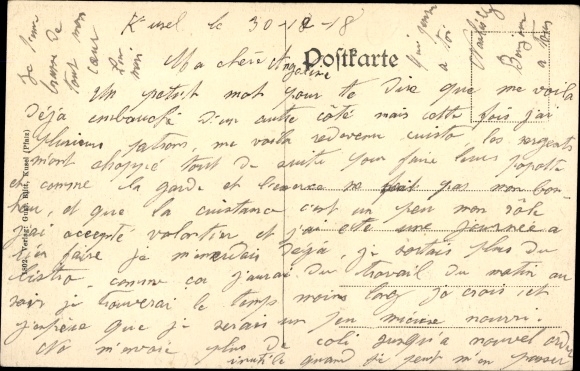 Kusel le 30-12-18
Ma chère Angeline
Postkarte
Un petit mot pour te dire que me voila
déjà embauché d'un autre côté mais cette fois j'ai
plusieurs patrons, me voila redevenu cuisto les sergents
m'ont choppé tout de suite pour faire leurs popote
et comme la garde et l'exercice ne fait pas mon bon-
heur, et que la cuistance c'est un peu mon rôle
j'ai accepté volontier et j'ai été une journée a
rien faire je m'ennuiais déjà, je sortais plus du
bistro, comme ca j'aurai du travail du matin au
soir je trouverai le temps moins long je crois, et
j'espère que je serais un peu mieux nourri.
Ne m'envoie plus de coli jusqu'a nouvel ordre
inutile quand je peut m'en passer
Je t'aime
tout mon
cœur
qui pense
a toi
Bonjour
a tous
1802. Verlag: Kusel (Pfalz)